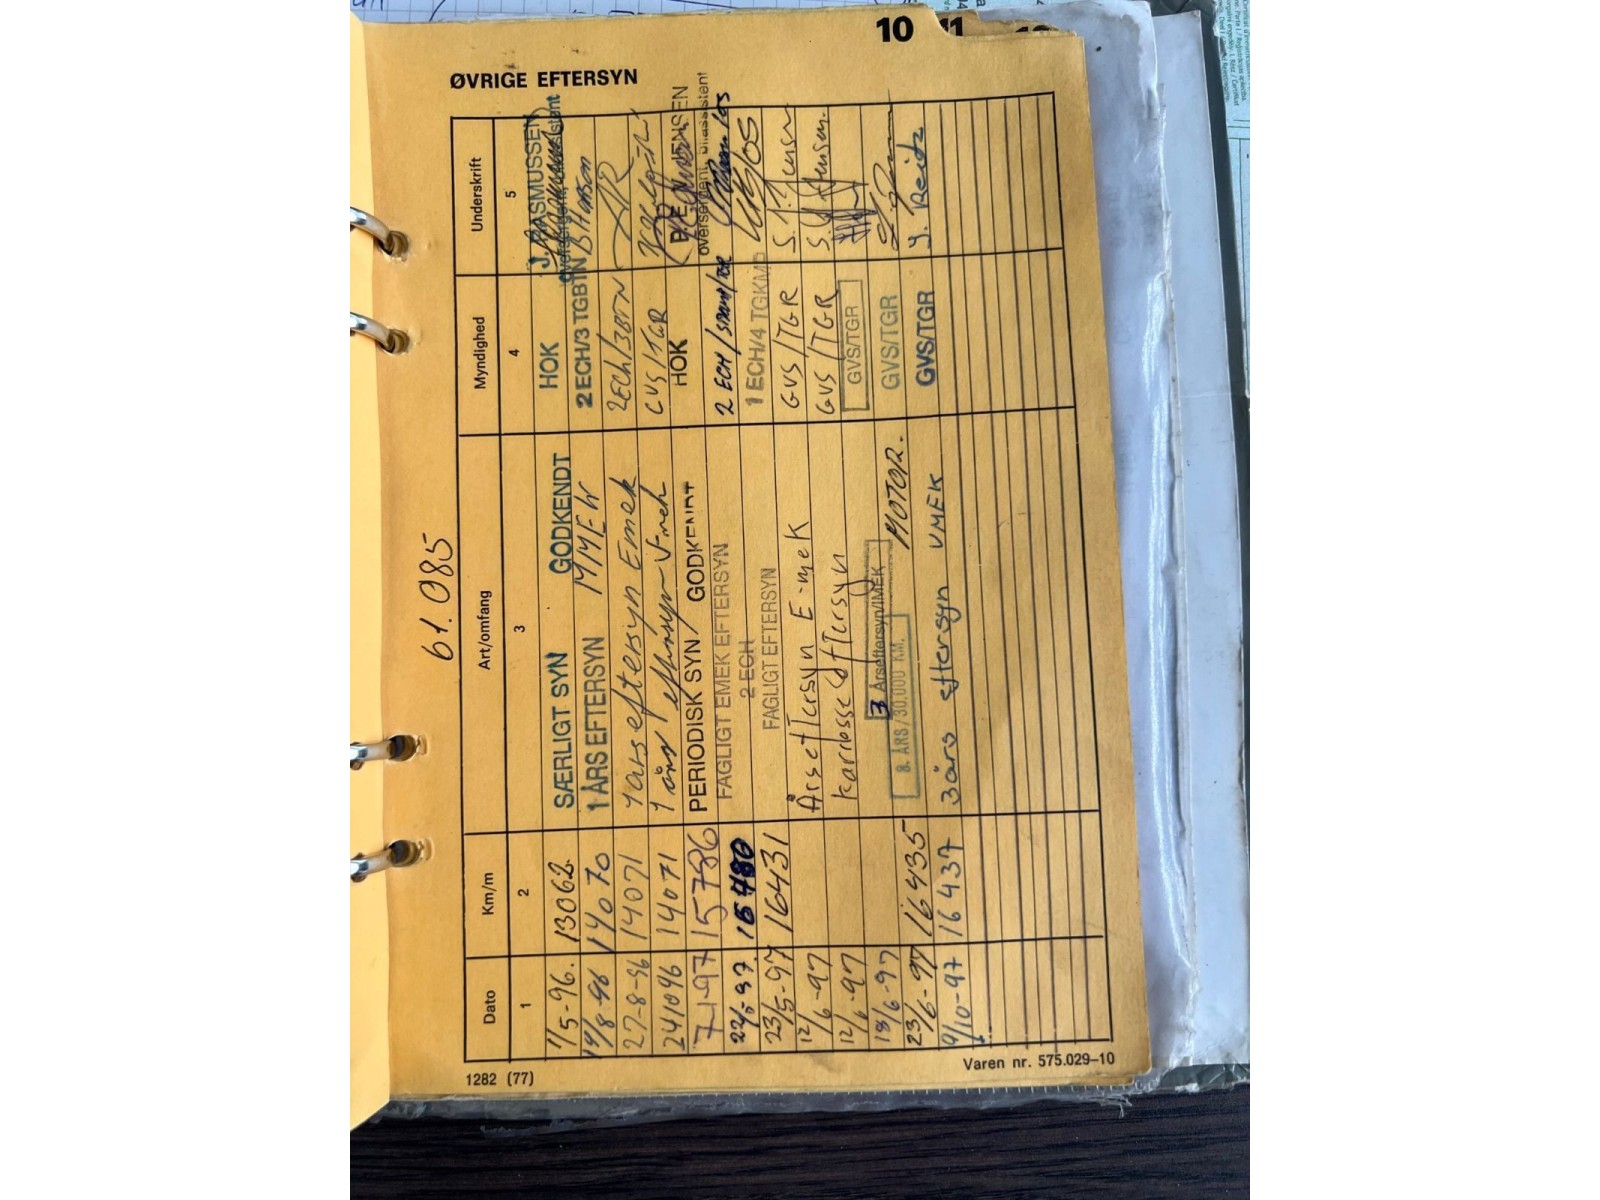 10 11
ØVRIGE EFTERSYN
61.085
Dato Km/m Art/omfang Myndighed Underskrift
1 2 3 4 5
1/5-96. 13062. SÆRLIGT SYN GODKENDT HOK J. RASMUSSEN
19/8-96 14070 1 ÅRS EFTERSYN 2 ECH/3 TGBTN
27-8-96 14071 1 års eftersyn Emek 2ECH/3BTN
241096 14071 1 års eftersyn V-mek GVS/TGR
7-1-97 15786 PERIODISK SYN/ GODKENDT HOK P.E. JENSEN
oversergent, bilassistent
22/5-97. FAGLIGT EMEK EFTERSYN 2 ECH
2 ECH
23/5-97 16431 FAGLIGT EFTERSYN 1 ECH/4 TGKMD
12/6-97 Årseftersyn E-mek GVS/TGR S. J. Jensen
12/6-97 karrosse eftersyn GVS/TGR S. J. Jensen.
18/6-97 3 Årseftersyn/IMEK GVS/TGR
23/6-97 16435 8. ÅRS/30.000 KM. MOTOR. GVS/TGR
9/10-97 16437 3 års eftersyn VMEK GVS/TGR J. Reitz
1282 (77)
Varen nr. 575.029-10